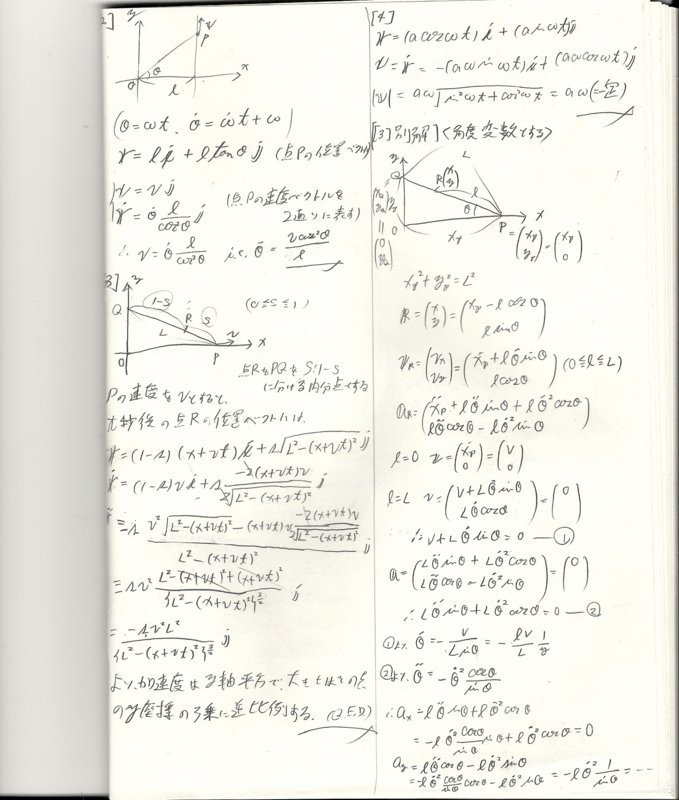 2]
y
v
P
θ
O
l
x
(θ=ωt, θ̇=ω̇t+ω)
r = l i + l tanθ j (点Pの位置ベクトル)
v = v j
ṙ = θ̇ l/cos²θ j
(点Pの速度ベクトルを
2通りに表す)
∴ v = θ̇ l/cos²θ i.e. θ̇ = v cos²θ/l
3]
y
Q
1-s
R
s
L
v
O
P
x
(0≦s≦1)
点RをPQをs:1-s
に分ける内分点とする
Pの速度をvとすると、
t秒後の点Rの位置ベクトルは、
r = (1-s)(x+vt) i + s√(L²-(x+vt)²) j
ṙ = (1-s)v i + s -2(x+vt)v/2√(L²-(x+vt)²) j
L²-(x+vt)²
= -s v²L²/{L²-(x+vt)²}^(3/2) j
より、加速度はy軸平行で、大きさはその点
のy座標の3乗に逆比例する. (Q.E.D)
[4]
r = (a cosωt) i + (a sinωt) j
v = ṙ = -(aω sinωt) i + (aω cosωt) j
|v| = aω√(sin²ωt+cos²ωt) = aω (一定)
[3]別解]<角度変数とする>
y
L
Q
R(x y)
l
θ
O
x_P
P
x
= (x_P y_P) = (x_P 0)
x_P²+y_Q² = L²
R = (x y) = (x_P - l cosθ, l sinθ)
v_R = (v_x v_y) = (ẋ_P + lθ̇ sinθ, lθ̇ cosθ) (0≦l≦L)
a_R = (ẍ_P + lθ̈ sinθ + lθ̇² cosθ, lθ̈ cosθ - lθ̇² sinθ)
l=0 v = (ẋ_P 0) = (v 0)
l=L v = (v+Lθ̇ sinθ, Lθ̇ cosθ) = (0 )
∴ v+Lθ̇ sinθ = 0 ―①
a = (Lθ̈ sinθ + Lθ̇² cosθ, Lθ̈ cosθ - Lθ̇² sinθ) = (0 )
∴ Lθ̈ sinθ + Lθ̇² cosθ = 0 ―②
①より. θ̇ = - v/(L sinθ) = - lv/L 1/y
②より. θ̈ = -θ̇² cosθ/sinθ
∴ a_x = lθ̈ sinθ + lθ̇² cosθ
= -lθ̇² cosθ/sinθ sinθ + lθ̇² cosθ = 0
a_y = lθ̈ cosθ - lθ̇² sinθ
= -lθ̇² cosθ/sinθ cosθ - lθ̇² sinθ = -lθ̇² 1/sinθ = ---